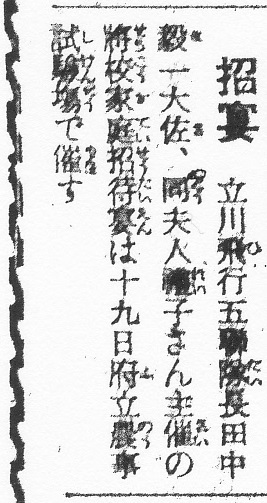 招宴　立川飛行五聯隊長田中
毅一大佐、同夫人　子さん主催の
将校家庭招待宴は十九日府立農事
試験場で催す